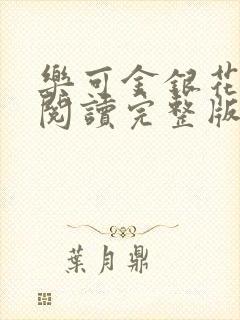 樂可金銀花
閱讀完整版
葉月鼎